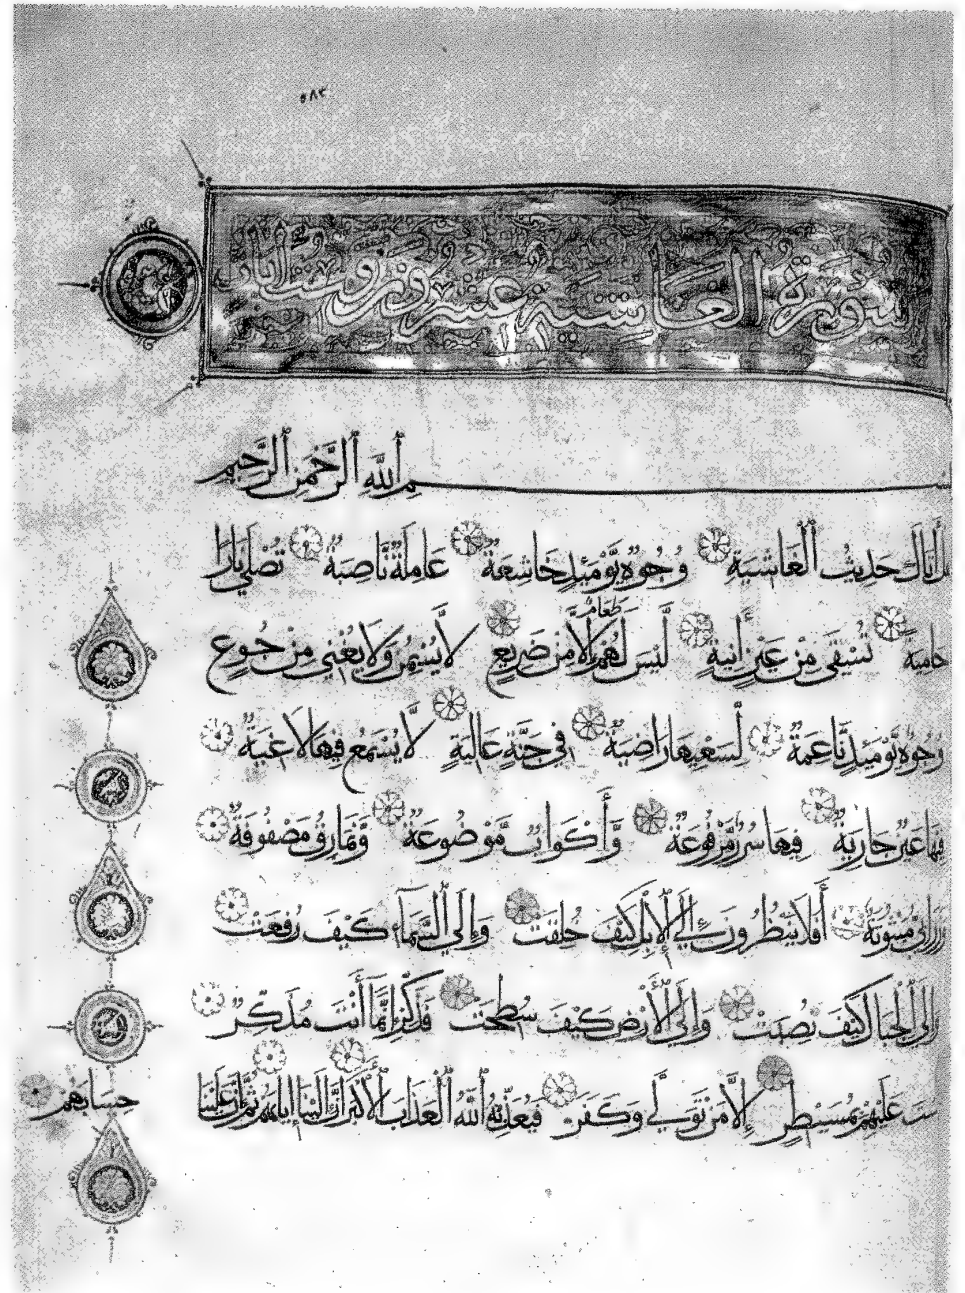 ٥٨٣
سورة الغاشية عشرون وست ايات
بِسْمِ اللَّهِ الرَّحْمَنِ الرَّحِيمِ
أَتَاكَ حَدِيثُ الْغَاشِيَةِ وُجُوهٌ يَوْمَئِذٍ خَاشِعَةٌ عَامِلَةٌ نَّاصِبَةٌ تَصْلَى نَارًا
حَامِيَةً تُسْقَى مِنْ عَيْنٍ آنِيَةٍ لَّيْسَ لَهُمْ طَعَامٌ إِلَّا مِنْ ضَرِيعٍ لَا يُسْمِنُ وَلَا يُغْنِي مِنْ جُوعٍ
وُجُوهٌ يَوْمَئِذٍ نَّاعِمَةٌ لِّسَعْيِهَا رَاضِيَةٌ فِي جَنَّةٍ عَالِيَةٍ لَّا يُسْمَعُ فِيهَا لَاغِيَةٌ
فِيهَا عَيْنٌ جَارِيَةٌ فِيهَا سُرُرٌ مَّرْفُوعَةٌ وَّأَكْوَابٌ مَّوْضُوعَةٌ وَّنَمَارِقُ مَصْفُوفَةٌ
وَزَرَابِيُّ مَبْثُوثَةٌ أَفَلَا يَنْظُرُونَ إِلَى الْإِبِلِ كَيْفَ خُلِقَتْ وَإِلَى السَّمَاءِ كَيْفَ رُفِعَتْ
وَإِلَى الْجِبَالِ كَيْفَ نُصِبَتْ وَإِلَى الْأَرْضِ كَيْفَ سُطِحَتْ فَذَكِّرْ إِنَّمَا أَنْتَ مُذَكِّرٌ
لَسْتَ عَلَيْهِمْ بِمُسَيْطِرٍ إِلَّا مَنْ تَوَلَّى وَكَفَرَ فَيُعَذِّبُهُ اللَّهُ الْعَذَابَ الْأَكْبَرَ إِنَّ إِلَيْنَا إِيَابَهُمْ ثُمَّ إِنَّ عَلَيْنَا
حِسَابَهُمْ